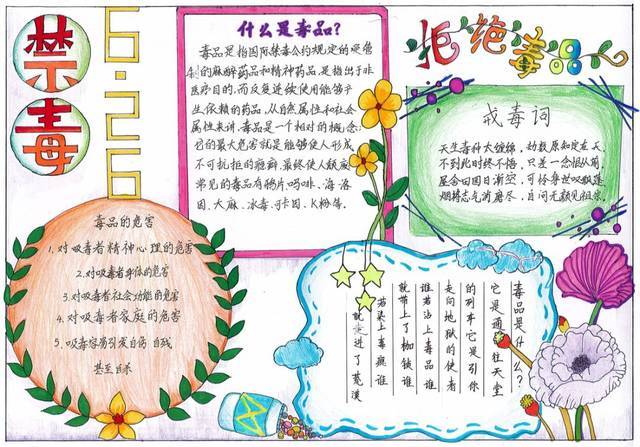 禁毒
6·26
什么是毒品?
毒品是指国际禁毒公约规定的受管
制的麻醉药品和精神药品,是指出于非
医疗目的,而反复连续使用能够产
生依赖的药品,从自然属性和社会
属性来讲,毒品是一个相对的概念,
它的最大危害就是能够使人形成
不可抗拒的瘾癖,最终使人颓废
常见的毒品有鸦片、吗啡、海洛
因、大麻、冰毒、可卡因、K粉等。
拒绝毒品
戒毒词
天生毒种太缠绵,劫数原知定在天,
不到死时终不悟,只差一念恨从前。
屋舍田园日渐空,可怜身世叹飘蓬
烟将志气消磨尽,自问无颜见祖宗。
毒品的危害
1、对吸毒者精神心理的危害
2、对吸毒者身体的危害
3、对吸毒者社会功能的危害
4、对吸毒者家庭的危害
5、吸毒容易引发自伤 自残
甚至自杀
毒品是什么?
它是通往天堂
的列车它是引你
走向地狱的使者
谁若沾上毒品谁
就带上了枷锁谁
若染上毒瘾谁
就走进了荒漠